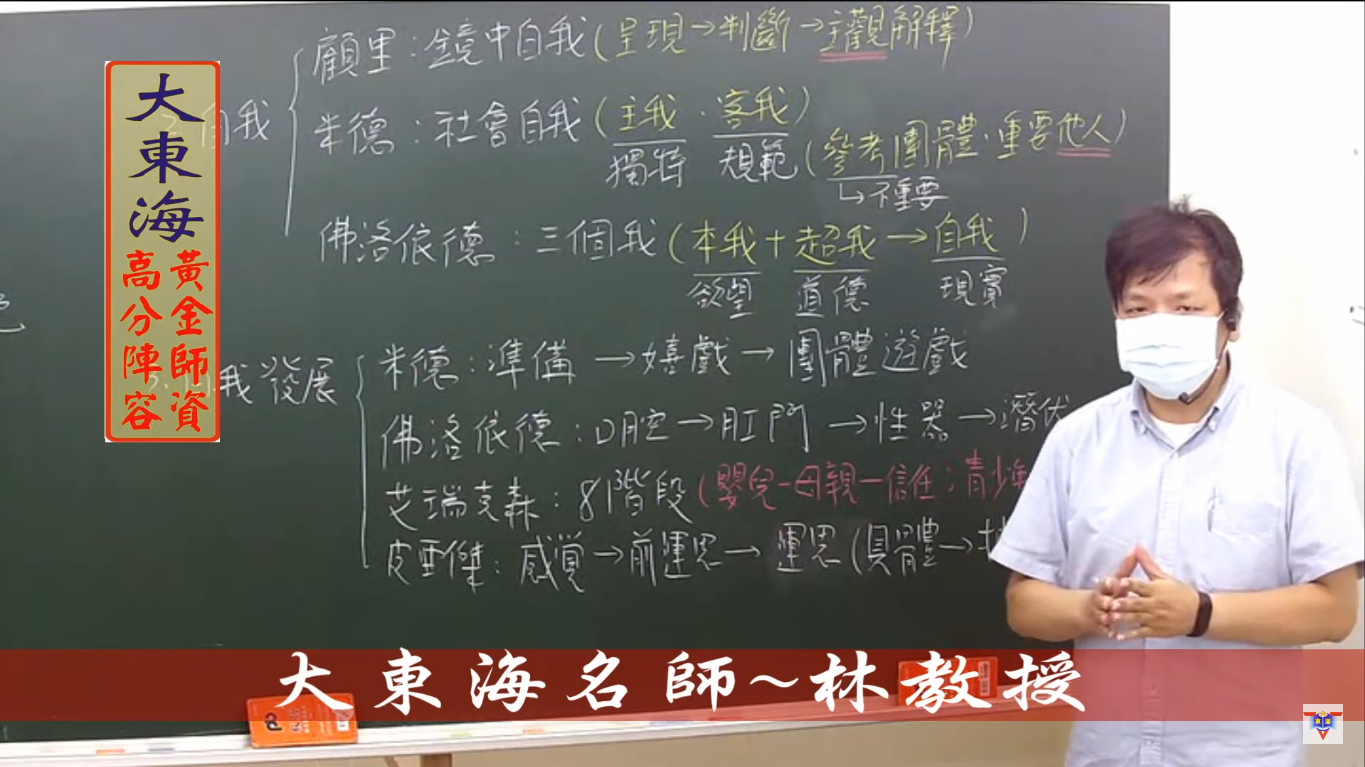 顧里：鏡中自我（呈現→判斷→主觀解釋）
自我
米德：社會自我（主我．客我）
獨特 規範（參考團體．重要他人）
↳不重要
佛洛依德：三個我（本我＋超我→自我）
慾望 道德 現實
我發展
米德：準備→嬉戲→團體遊戲
佛洛依德：口腔→肛門→性器→潛伏
艾瑞克森：8階段（嬰兒－母親－信任；青少年
皮亞傑：感覺→前運思→運思（具體→
大東海
黃金師資
高分陣容
大東海名師~林教授